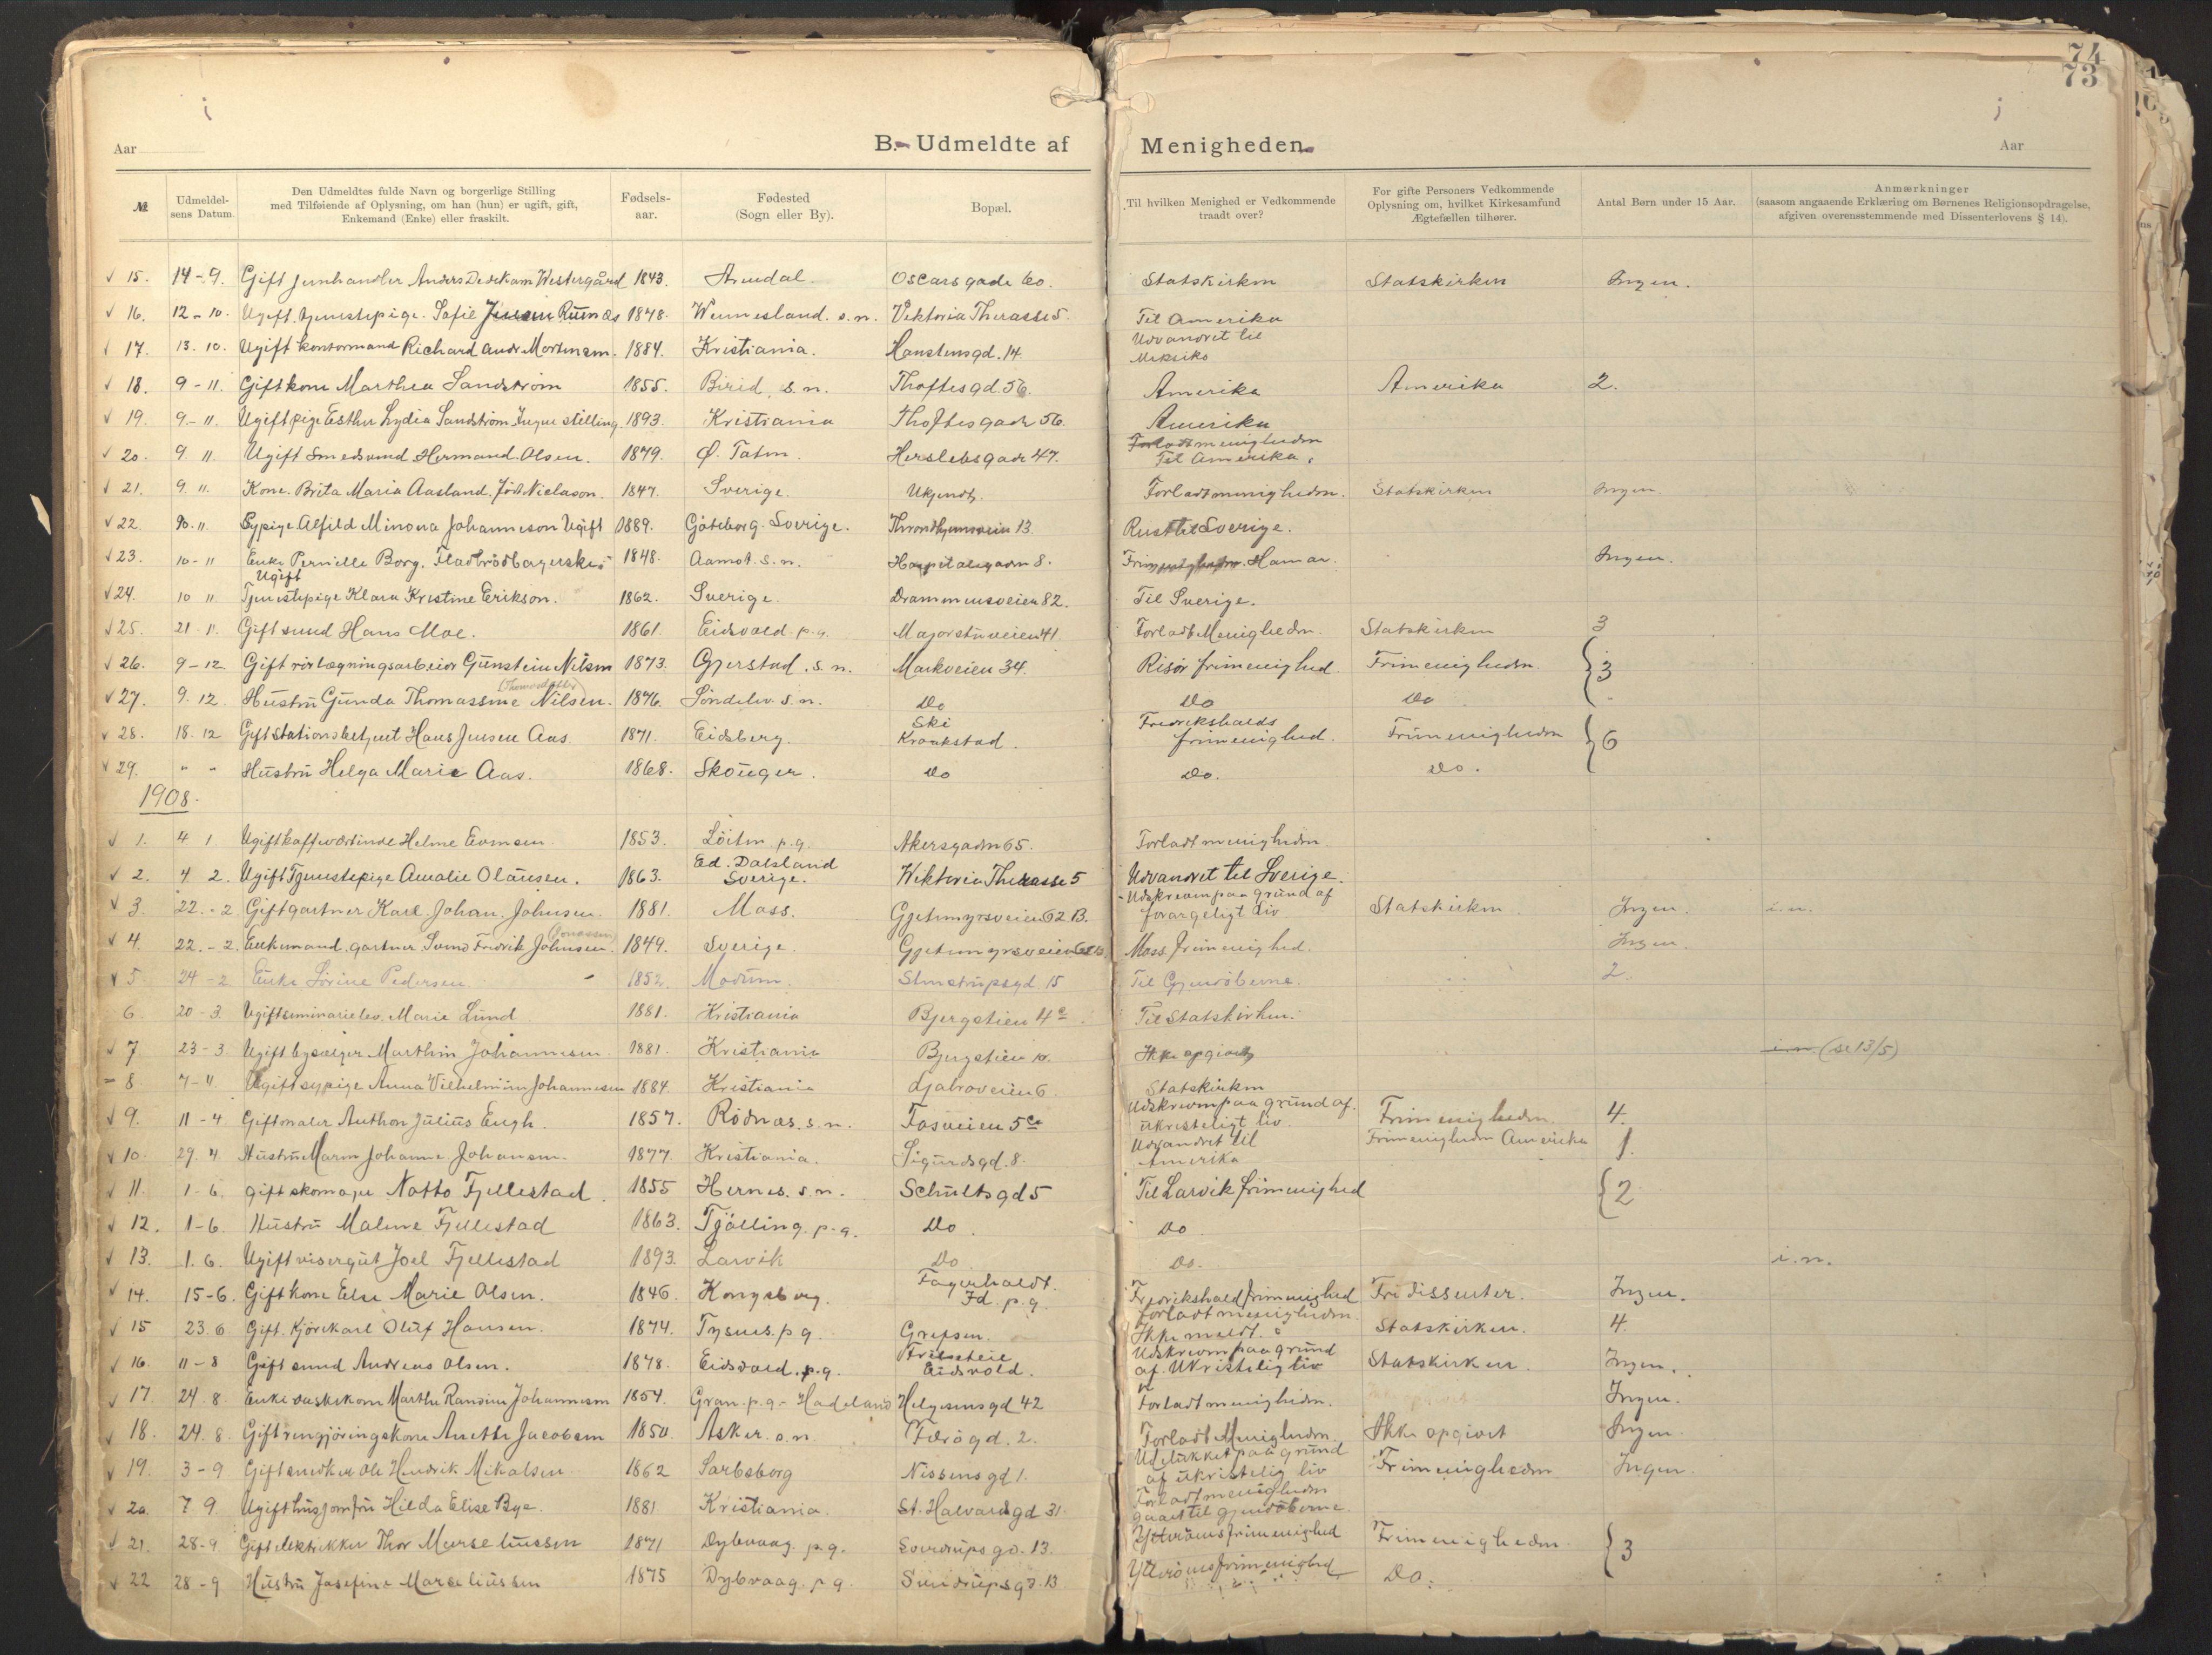 74
73
Aar
B. Udmeldte af Menigheden
Aar
№
Udmeldelsens Datum.
Den Udmeldtes fulde Navn og borgerlige Stilling
med Tilføiende af Oplysning, om han (hun) er ugift, gift,
Enkemand (Enke) eller fraskilt.
Fødselsaar.
Fødested
(Sogn eller By).
Bopæl.
Til hvilken Menighed er Vedkommende
traadt over?
For gifte Personers Vedkommende
Oplysning om, hvilket Kirkesamfund
Ægtefællen tilhører.
Antal Børn under 15 Aar.
Anmærkninger
(saasom angaaende Erklæring om Børnenes Religionsopdragelse,
afgiven overensstemmende med Dissenterlovens § 14).
15. 14-9. Gift Jernhandler Anders Westergård 1843. Arendal. Oscarsgade 60. Statskirken Statskirken Ingen.
16. 12-10. Ugift tjenestepige Sofie 1848. Wennesland. s.n. Viktoria Therasse 5. Til Amerika
17. 13.10. Ugift kontormand Richard Andr Mortensen. 1884. Kristiania. Hanstensgd. 14. Udvandret til Meksiko
18. 9-11. Gift kone Marthea Sandström 1855. Birid, s.n. Thoftesgd 56. Amerika Amerika 2.
19. 9-11. Ugift pige Esther Lydia Sandström Ingen stilling 1893. Kristiania Thoftesgade 56. Amerika
20. 9.11. Ugift Smedsvend Hermand Olsen. 1879. Ø. Toten. Herslebsgade 47. Forladt menigheden Til Amerika.
21. 9.11. Kone. Brita Maria Aasland. Född Niclason. 1847. Sverige. Ukjendt. Forladt menigheden. Statskirken Ingen.
22. 10.11. Sypige Alfild Minona Johanneson Ugift 1889. Göteborg. Sverige. Throndhjemsvein 13. Reist til Sverige.
23. 10-11 Enke Pernille Borg. Fladbrödbagerske 1848. Aamot. s.n. Hospitalsgaden 8. Hamar. Ingen.
24. 10 11 Ugift Tjenestepige Klara Kristine Erikson. 1862. Sverige. Drammensveien 82. Til Sverige.
25. 21-11. Gift svend Hans Moe. 1861. Eidsvold p.g. Majorstuveien 41. Forladt Menigheden. Statskirken 3
26. 9-12 Gift rörlægningsarbeider Gunstein Nilsen 1873. Gjerstad. s.n. Markveien 34. Risör frimenighed Frimenigheden. 3
27. 9.12. Hustru Gunda Thomassine Nilsen. 1876. Söndelev. s.n. Do Do Do
28. 18.12 Gift Stationsbetjent Hans Jensen Aas 1871. Eidsberg. Ski Kraakstad. Fredrikshalds frimenighed. Frimenigheden 6
29. " " Hustru Helga Marie Aas. 1868. Skouger. Do Do. Do.
1908.
1. 4 1 Ugift kaffeværtinde Helene Evensen 1853. Löiten p.g. Akersgaden 65. Forladt menigheden
2. 4 2. Ugift Tjenestepige Amalie Olausen. 1863. Ed. Dalsland Sverige. Wiktoria Therasse 5 Udvandret til Sverige.
3. 22.-2. Gift gartner Karl Johan Johnsen. 1881. Moss. Gjetemyrsveien 62 B. Udskreven paa grund af forargeligt liv Statskirken Ingen. i.n.
4. 22.-2. Enkemand. gartner Svend Fredrik Johnsen (Jonassen) 1849. Sverige. Gjetemyrsveien 62 B Moss frimenighed. Ingen.
5 24-2 Enke Sörine Pedersen 1852. Modum. Stenstrupsgd. 15 Til Gjendöberne. 2.
6. 20-3. Ugift seminarielev. Marie Lund 1881. Kristiania Bjergstien 4 c. Til Statskirken.
7 23-3. Ugift bysælger Marthin Johannesen. 1881. Kristiania Bjergstien 10. Ikke opgivet i.n. (se 13/5)
8. 7-4. Ugift sypige Anna Vilhelmine Johannesen 1884. Kristiania Ljabroveien 6. Statskirken
9. 11-4. Gift maler Anthon Julius Engh. 1857. Rödnæs. s.n. Fosveien 5 c Udskreven paa grund af ukristeligt liv. Frimenigheden. 4.
10. 29.4. Hustru Maren Johanne Johansen. 1877. Kristiania. Sigurdsgd. 8. Udvandret til Amerika Frimenigheden Amerika 1.
11. 1-6. gift skomager Notto Fjellestad. 1855 Hernes. s.n. Schultsgd 5 Til Larvik frimenighed 2
12. 1-6. Hustru Malene Fjellestad 1863. Tjölling. p.g. Do. Do
13. 1.6. Ugift visergut Joel Fjellestad 1893. Larvik Do Do. i.n.
14. 15-6. Gift kone Else Marie Olsen. 1846. Kongsberg. Fagerholdt. Id. p.g. Fredrikshald frimenighed Fri dissenter. Ingen.
15 23.6 Gift. Kjörekarl Oluf Hansen. 1874. Tysnes. p.g. Grefsen. Forladt menigheden. Ikke meldt. Statskirken. 4.
16. 11-8 Gift svend Andreas Olsen. 1878. Eidsvold. p.g. Eidsvold. Udskreven paa grund af Ukristelig liv Statskirken. Ingen.
17 24.8. Enke vaskekone Marthe Randine Johannesen 1854. Gran. p.g. - Hadeland Helgesensgd 42 Forladt menigheden. Ingen.
18. 24.8. Gift rengjöringskone Anethe Jacobsen 1850. Asker. s.n. Færögd. 2. Forladt Menigheden. Ikke opgivet Ingen.
19. 3-9 Gift snedker Ole Hendrik Mikalsen 1862 Sarbsborg Nissensgd 1. Udelukket paa grund af ukristelig liv Frimenigheden Ingen
20. 7 9 Ugift husjomfru Hilda Elise Bye. 1881 Kristiania. St. Halvardsgd 31. Forladt menigheden gaaet til gjendöberne.
21. 28-9. Gift elektrikker Thor Marseliussen 1871 Dybvaag. p.g. Sverdrupsgd. 13. Yteröens frimenighed Frimenigheden. 3
22 28-9 Hustru Josefine Marseliussen 1875 Dybvaag. p.g. Sverdrupsgd. 13 Ytteröens frimenighed Do.